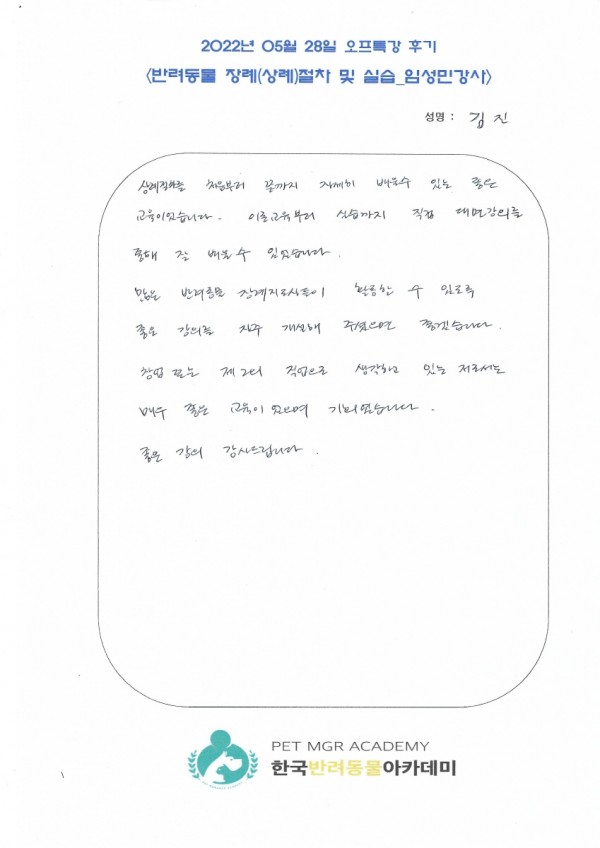 2022년 05월 28일 오프특강 후기
<반려동물 장례(상례)절차 및 실습_임성민강사>
성명 : 김진
상례절차를 처음부터 끝까지 자세히 배울수 있는 좋은
교육이었습니다. 이론교육부터 실습까지 직접 대면강의를
통해 잘 배울 수 있었습니다.
많은 반려동물 장례지도사들이 활동할 수 있도록
좋은 강의를 자주 개설해 주셨으면 좋겠습니다.
창업 또는 제 2의 직업으로 생각하고 있는 저로서는
매우 좋은 교육이었으며 기회였습니다.
좋은 강의 감사드립니다.
PET MGR ACADEMY
한국반려동물아카데미